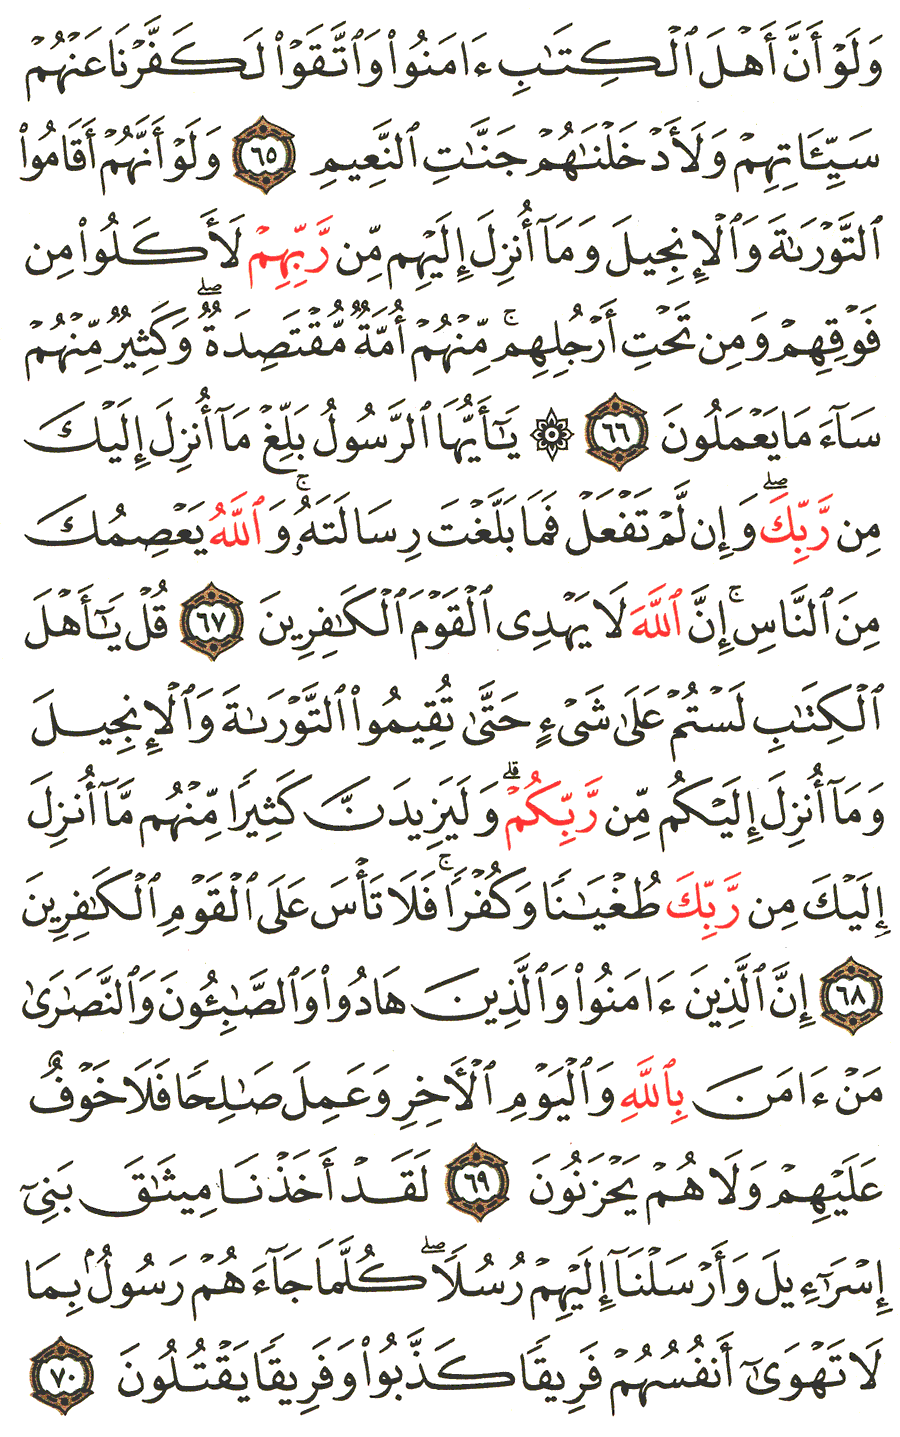 وَلَوْ أَنَّ أَهْلَ ٱلْكِتَٰبِ ءَامَنُوا۟ وَٱتَّقَوْا۟ لَكَفَّرْنَا عَنْهُمْ
سَيِّـَٔاتِهِمْ وَلَأَدْخَلْنَٰهُمْ جَنَّٰتِ ٱلنَّعِيمِ ٦٥ وَلَوْ أَنَّهُمْ أَقَامُوا۟
ٱلتَّوْرَىٰةَ وَٱلْإِنجِيلَ وَمَآ أُنزِلَ إِلَيْهِم مِّن رَّبِّهِمْ لَأَكَلُوا۟ مِن
فَوْقِهِمْ وَمِن تَحْتِ أَرْجُلِهِم ۚ مِّنْهُمْ أُمَّةٌ مُّقْتَصِدَةٌ ۖ وَكَثِيرٌ مِّنْهُمْ
سَآءَ مَا يَعْمَلُونَ ٦٦ ۞ يَٰٓأَيُّهَا ٱلرَّسُولُ بَلِّغْ مَآ أُنزِلَ إِلَيْكَ
مِن رَّبِّكَ ۖ وَإِن لَّمْ تَفْعَلْ فَمَا بَلَّغْتَ رِسَالَتَهُۥ ۚ وَٱللَّهُ يَعْصِمُكَ
مِنَ ٱلنَّاسِ ۚ إِنَّ ٱللَّهَ لَا يَهْدِى ٱلْقَوْمَ ٱلْكَٰفِرِينَ ٦٧ قُلْ يَٰٓأَهْلَ
ٱلْكِتَٰبِ لَسْتُمْ عَلَىٰ شَىْءٍ حَتَّىٰ تُقِيمُوا۟ ٱلتَّوْرَىٰةَ وَٱلْإِنجِيلَ
وَمَآ أُنزِلَ إِلَيْكُم مِّن رَّبِّكُمْ ۗ وَلَيَزِيدَنَّ كَثِيرًا مِّنْهُم مَّآ أُنزِلَ
إِلَيْكَ مِن رَّبِّكَ طُغْيَٰنًا وَكُفْرًا ۚ فَلَا تَأْسَ عَلَى ٱلْقَوْمِ ٱلْكَٰفِرِينَ
٦٨ إِنَّ ٱلَّذِينَ ءَامَنُوا۟ وَٱلَّذِينَ هَادُوا۟ وَٱلصَّٰبِـُٔونَ وَٱلنَّصَٰرَىٰ
مَنْ ءَامَنَ بِٱللَّهِ وَٱلْيَوْمِ ٱلْءَاخِرِ وَعَمِلَ صَٰلِحًا فَلَا خَوْفٌ
عَلَيْهِمْ وَلَا هُمْ يَحْزَنُونَ ٦٩ لَقَدْ أَخَذْنَا مِيثَٰقَ بَنِىٓ
إِسْرَٰٓءِيلَ وَأَرْسَلْنَآ إِلَيْهِمْ رُسُلًا ۖ كُلَّمَا جَآءَهُمْ رَسُولٌۢ بِمَا
لَا تَهْوَىٰٓ أَنفُسُهُمْ فَرِيقًا كَذَّبُوا۟ وَفَرِيقًا يَقْتُلُونَ ٧٠